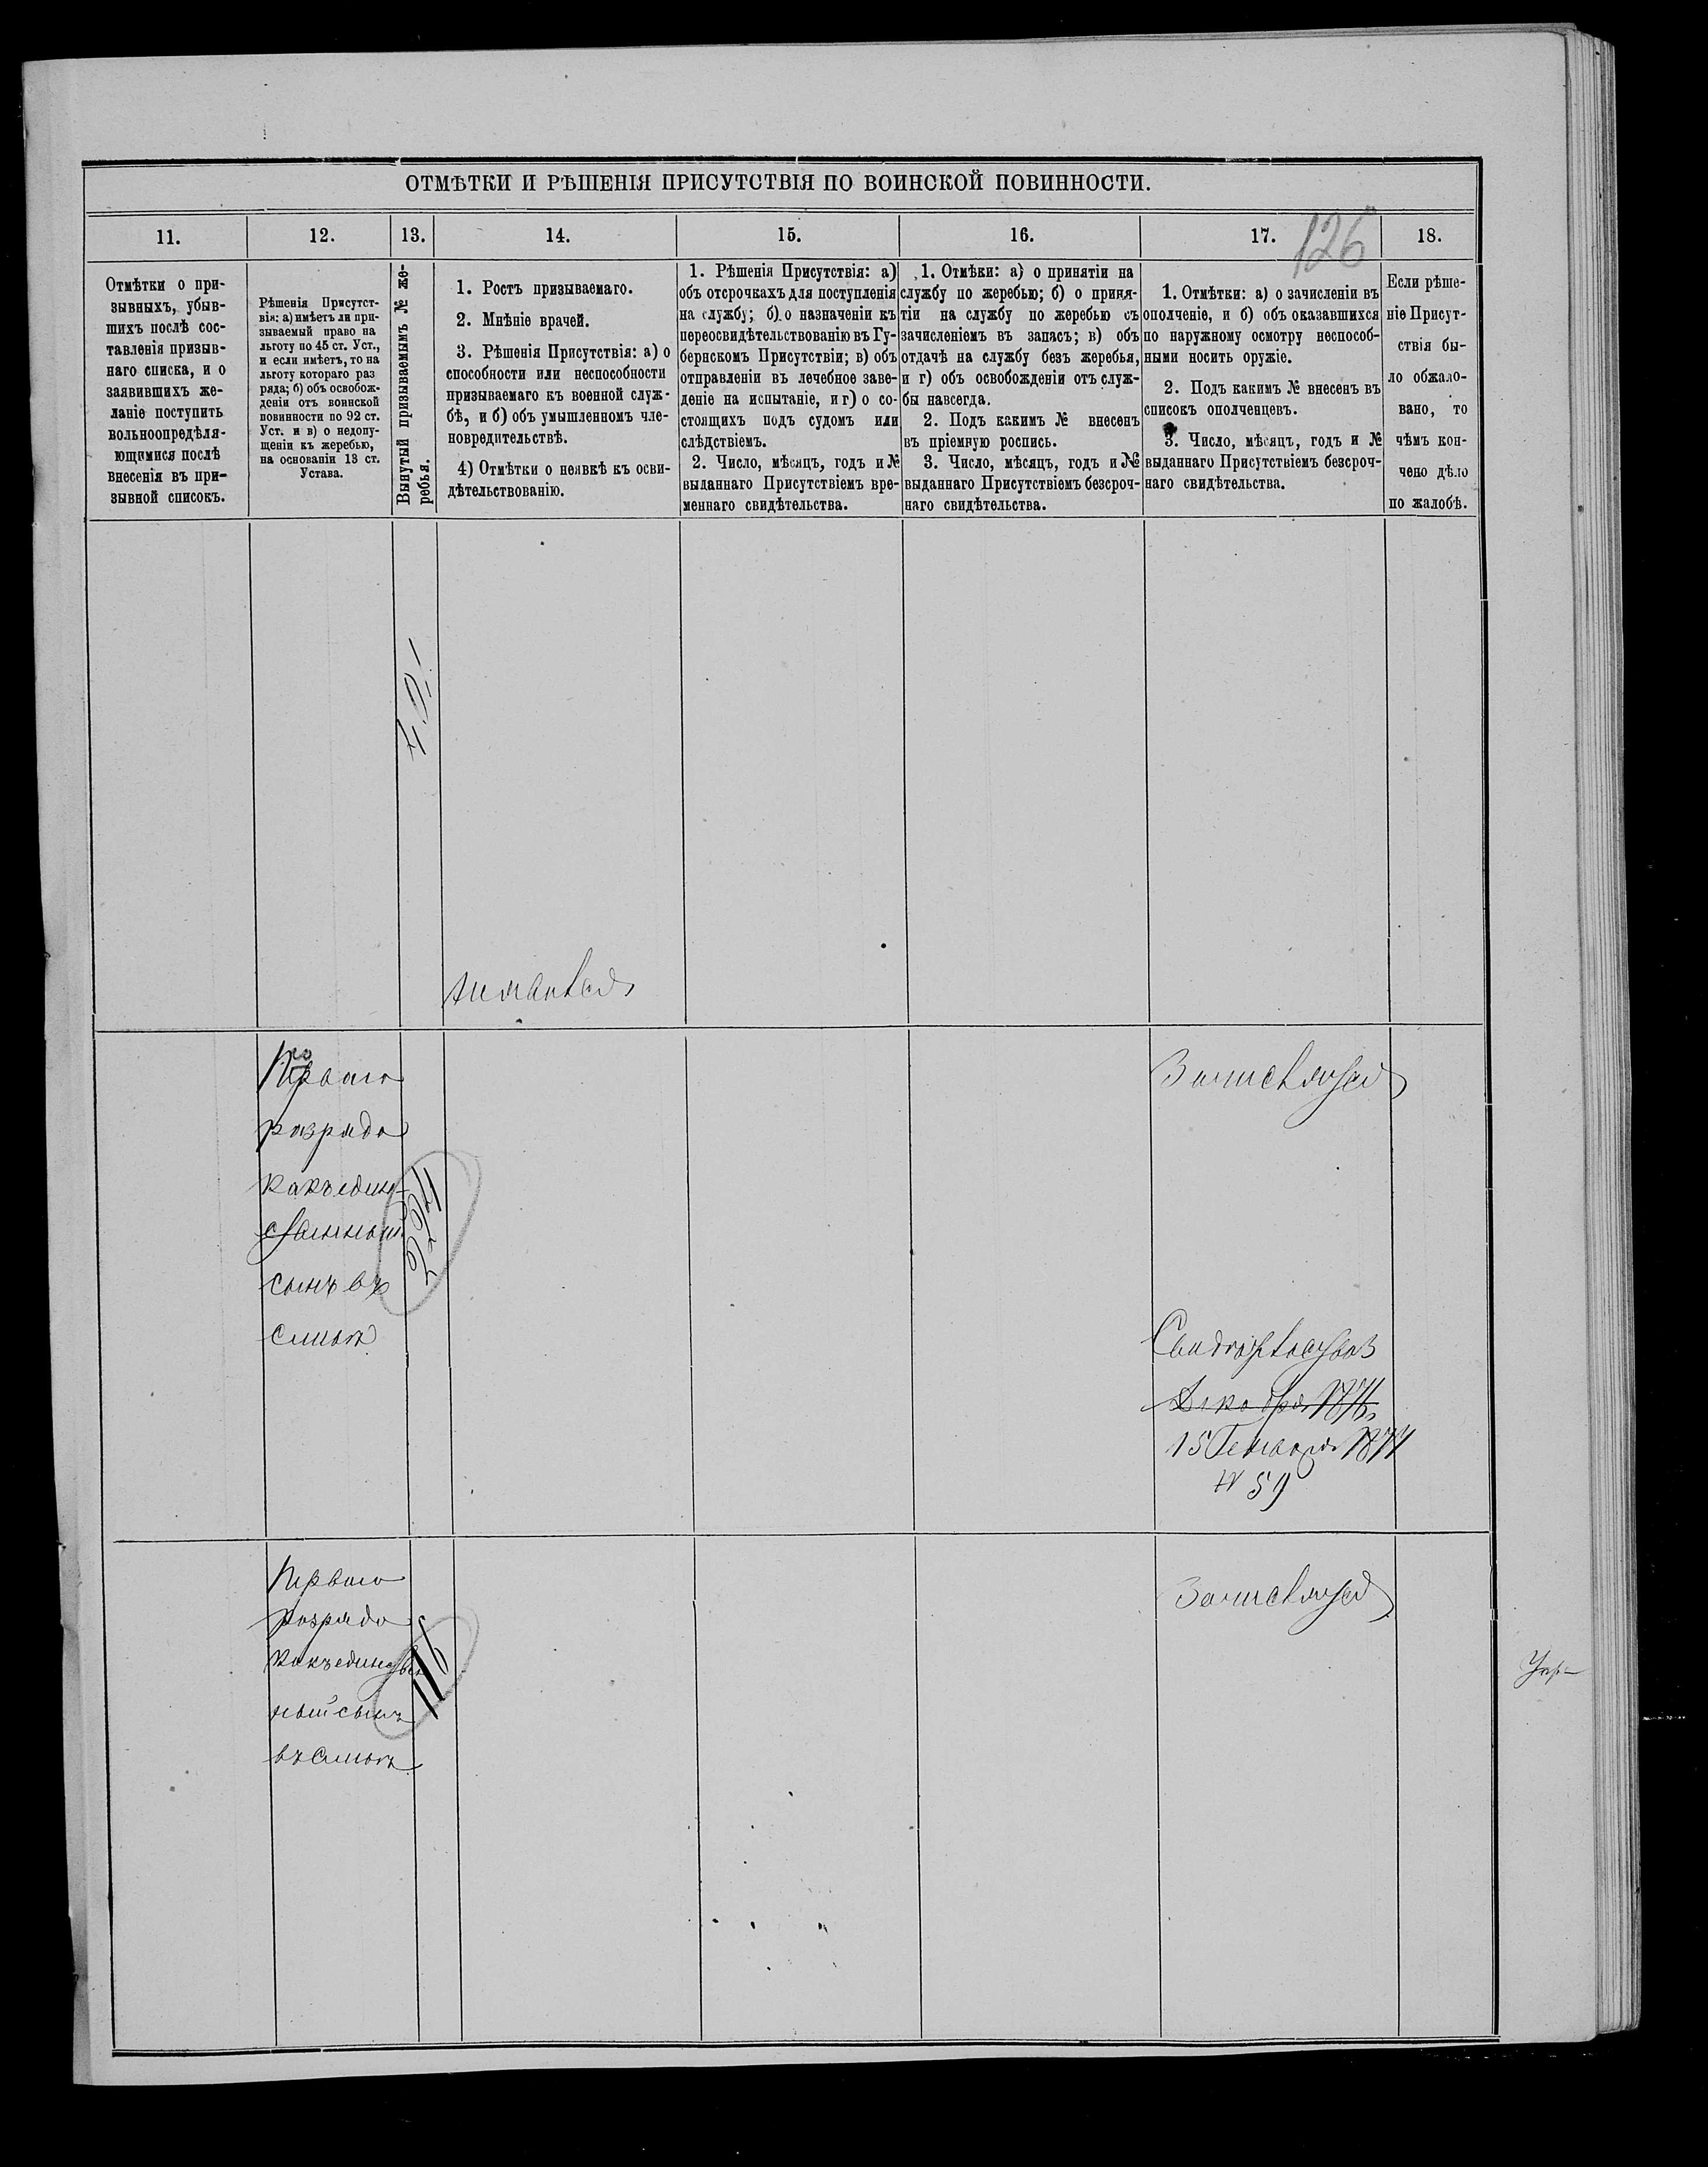 126
ОТМѢТКИ И РѢШЕНІЯ ПРИСУТСТВІЯ ПО ВОИНСКОЙ ПОВИННОСТИ.
11.
12.
13.
14.
15.
16.
17.
18.
Отмѣтки о при-
зывныхъ, убыв-
шихъ послѣ сос-
тавленія призыв-
наго списка, и о
заявившихъ же-
ланіе поступить
вольноопредѣля-
ющимися послѣ
внесенія въ при-
зывной списокъ.
Рѣшенія Присутст-
вія: а) имѣетъ ли при-
зываемый право на
льготу по 45 ст. Уст.,
и если имѣетъ, то на
льготу котораго раз
ряда; б) объ освобож-
деніи отъ воинской
повинности по 92 ст.
Уст. и в) о недопу-
щеніи къ жеребью,
на основаніи 13 ст.
Устава.
Вынутый призываемымъ № же-
ребья.
1. Ростъ призываемаго.
2. Мнѣніе врачей.
3. Рѣшенія Присутствія: а) о
способности или неспособности
призываемаго къ военной служ-
бѣ, и б) объ умышленномъ чле-
новредительствѣ.
4) Отмѣтки о неявкѣ къ осви-
дѣтельствованію.
1. Рѣшенія Присутствія: а)
объ отсрочкахъ для поступленія
на службу; б) о назначеніи къ
переосвидѣтельствованію въ Гу-
бернскомъ Присутствіи; в) объ
отправленіи въ лечебное заве-
деніе на испытаніе, и г) о со-
стоящихъ подъ судомъ или
слѣдствіемъ.
2. Число, мѣсяцъ, годъ и №
выданнаго Присутствіемъ вре-
меннаго свидѣтельства.
1. Отмѣки: а) о принятіи на
службу по жеребью; б) о приня-
тіи на службу по жеребью съ
зачисленіемъ въ запасъ; в) объ
отдачѣ на службу безъ жеребья,
и г) объ освобожденіи отъ служ-
бы навсегда.
2. Подъ какимъ № внесенъ
въ пріемную роспись.
3. Число, мѣсяцъ, годъ и №
выданнаго Присутствіемъ безсроч-
наго свидѣтельства.
1. Отмѣтки: а) о зачисленіи въ
ополченіе, и б) объ оказавшихся
по наружному осмотру неспособ-
ными носить оружіе.
2. Подъ какимъ № внесенъ въ
списокъ ополченцевъ.
3. Число, мѣсяцъ, годъ и №
выданнаго Присутствіемъ безсроч-
наго свидѣтельства.
Если рѣше-
ніе Присут-
ствія бы-
ло обжало-
вано, то
чѣмъ кон-
чено дѣло
по жалобѣ.
Перваго
разряда
какъ един-
ственный
сынъ въ
семьѣ
Зачисляется
Свидѣтельство
Декабря 1876
15 Генваря 1877
№ 59
Перваго
разряда
какъ единствен
ный сынъ
въ семьѣ
116
Зачисляется